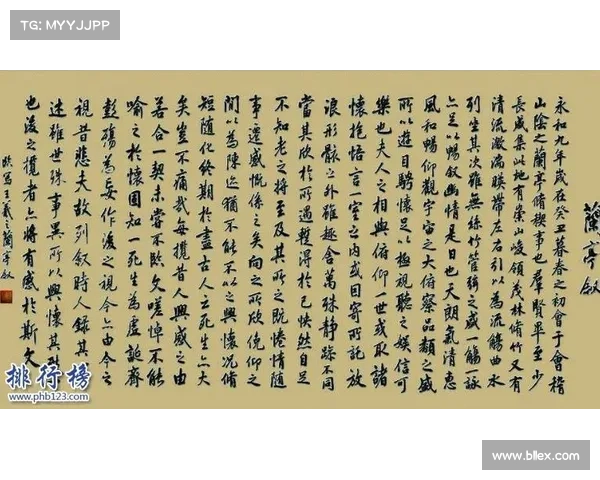 TG: MYYJJPP
蘭亭敘
永和九年歲在癸丑暮春之初會于會稽
山陰之蘭亭脩禊事也羣賢畢至少
長咸集此地有崇山峻領茂林脩竹又有
清流激湍暎帶左右引以為流觴曲水
列坐其次雖無絲竹管絃之盛一觴一詠
亦足以暢敘幽情是日也天朗氣清惠
風和暢仰觀宇宙之大俯察品類之盛
所以遊目騁懷足以極視聽之娛信可
樂也夫人之相與俯仰一世或取諸
懷抱悟言一室之内或因寄所託放
浪形骸之外雖趣舍萬殊靜躁不同
當其欣於所遇暫得於己怏然自足
不知老之將至及其所之既惓情隨
事遷感慨係之矣向之所欣俛仰之
閒以為陳迹猶不能不以之興懷況脩
短隨化終期於盡古人云死生亦大
矣豈不痛哉每攬昔人興感之由
若合一契未嘗不臨文嗟悼不能
喻之於懷固知一死生為虛誕齊
彭殤為妄作後之視今亦由今之
視昔悲夫故列敘時人錄其
述雖世殊事異所以興懷其
也後之攬者亦將有感於斯文
臨寫王羲之蘭亭敘
排行榜
www.phb123.com
www.bllex.com